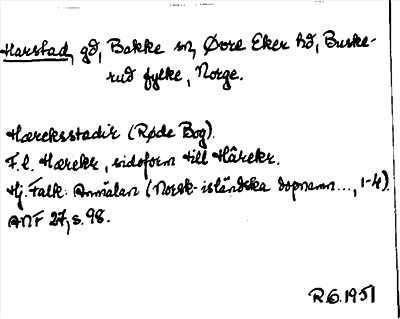 Harstad, gd, Bakke sn, Øvre Eker hd, Buske-
rud fylke, Norge.
Hæreksstadir (Røde Bog).
F.l. Hærekr, sidoform till Hårekr.
Hj. Falk: Anmälan (Norsk-isländska dopnamn..., 1-4)
ANF 27, s. 98.
R.O. 1951